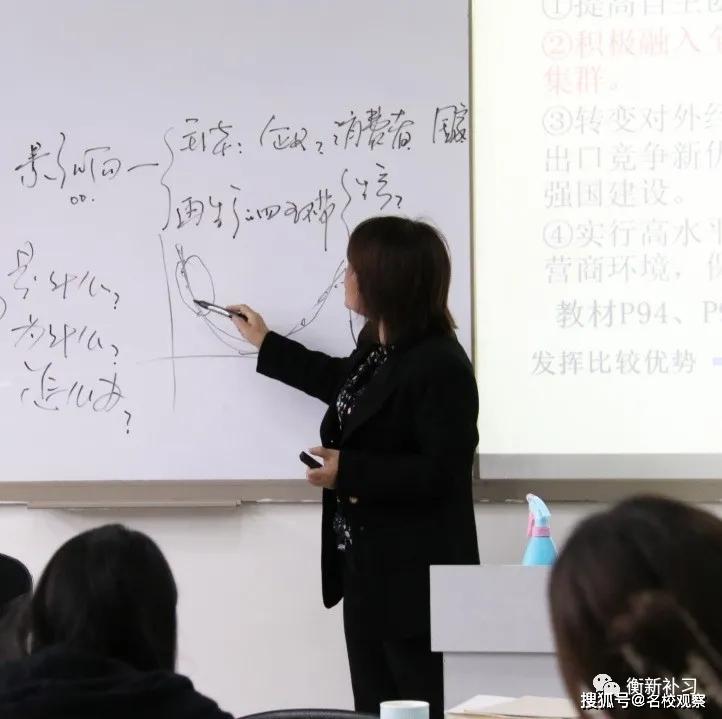 影响一
主体：企业、消费者 国家
再生产四环节
是什么？
为什么？
怎么办？
①提高自主
②积极融入
集群。
③转变对外经
出口竞争新优
强国建设。
④实行高水平
营商环境，
教材P94、P
发挥比较优势
衡新补习
搜狐号@名校观察